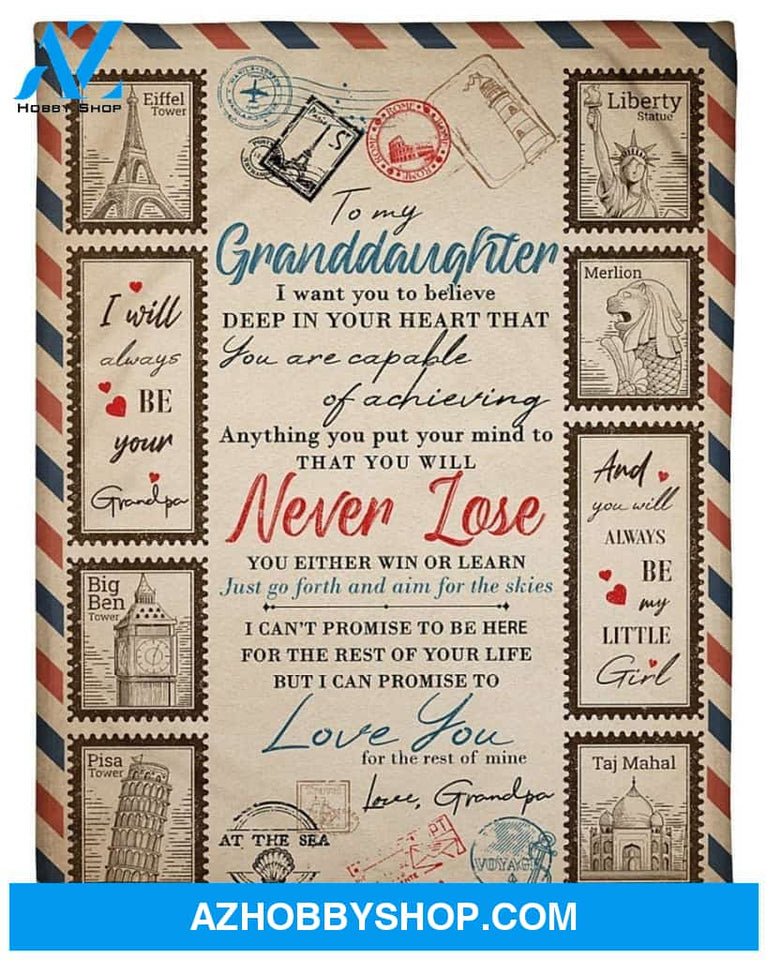 AZ
HOBBY SHOP
Eiffel
Tower
PARIS
ROME
ROME
Liberty
Statue
To my
Granddaughter
I want you to believe
DEEP IN YOUR HEART THAT
You are capable
of achieving
Anything you put your mind to
THAT YOU WILL
Never Lose
YOU EITHER WIN OR LEARN
Just go forth and aim for the skies
I CAN'T PROMISE TO BE HERE
FOR THE REST OF YOUR LIFE
BUT I CAN PROMISE TO
Love You
for the rest of mine
Love, Grandpa
I will
always
BE
your
Grandpa
Big
Ben
Tower
Pisa
Tower
Merlion
And
you will
ALWAYS
BE
my
LITTLE
Girl
Taj Mahal
AT THE SEA
VOYAGE
AZHOBBYSHOP.COM